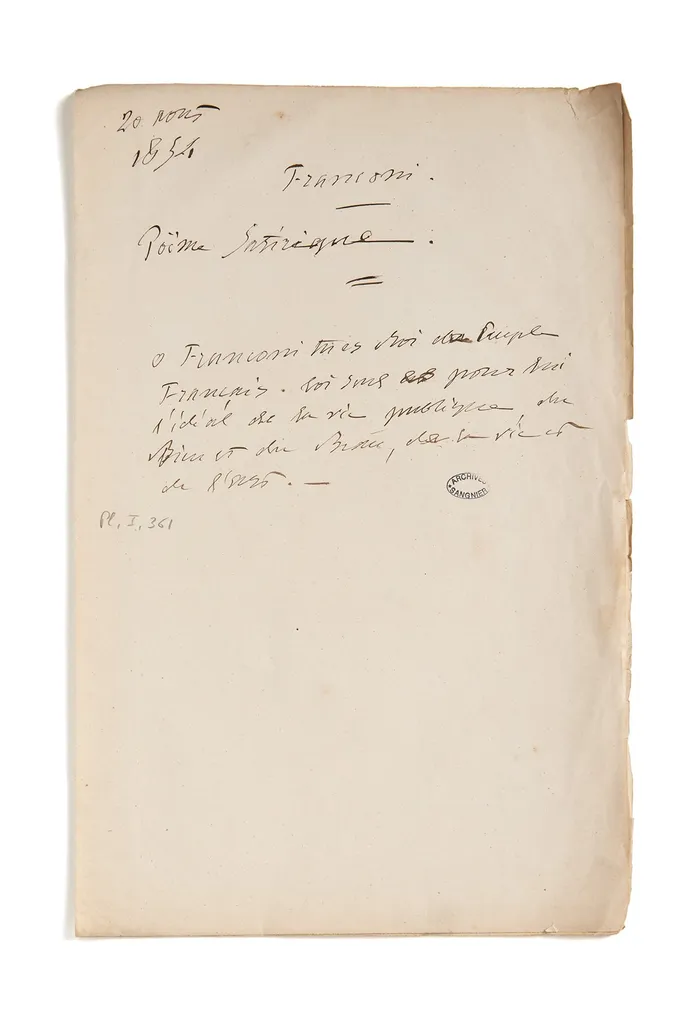 20 Aout
1854
Franconi.
Poème Satirique.
O Franconi tu es Roi du Peuple
Français. toi seul es pour lui
l'idéal de la vie publique, du
Bien et du Beau, de la vie et
de l'art. —
ARCHIVES
SANGNIER
Pl. I, 361